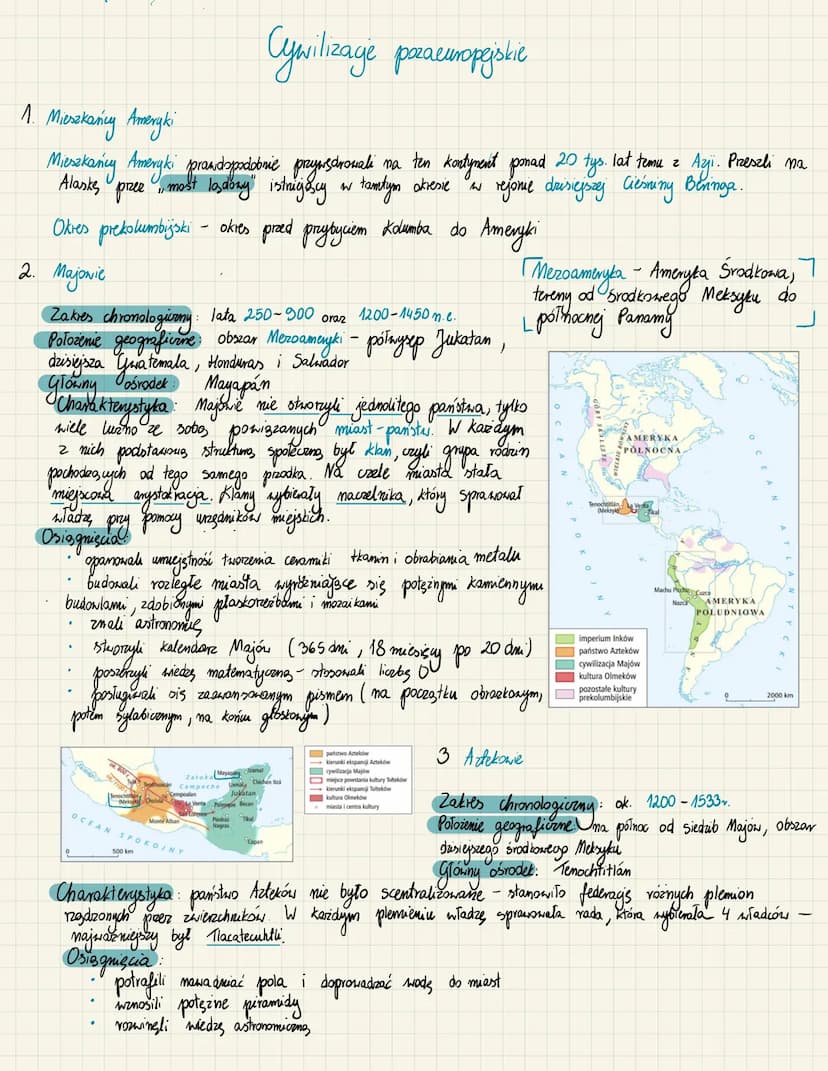 Cywilizacje pozaeuropejskie
1. Mieszkańcy Ameryki
Mieszkańcy Ameryki prawdopodobnie przywędrowali na ten kontynent ponad 20 tys. lat temu z Azji. Przeszli na
Alaskę przez „most lądowy" istniejący w tamtym okresie w rejonie dzisiejszej Cieśniny Beringa.
Okres prekolumbijski – okres przed przybyciem Kolumba do Ameryki
2. Majowie
Mezoameryka – Ameryka Środkowa,
tereny od środkowego Meksyku do
północnej Panamy
Zakres chronologiczny: lata 250-900 oraz 1200-1450 n.e.
Położenie geograficzne: obszar Mezoameryki – półwysep Jukatan,
dzisiejsza Gwatemala, Honduras i Salwador
Główny ośrodek: Mayapán
Charakterystyka: Majowie nie stworzyli jednolitego państwa, tylko
wiele luźno ze sobą powiązanych miast-państw. W każdym
z nich podstawową strukturą społeczną był klan, czyli grupa rodzin
pochodzących od tego samego przodka. Na czele miasta stała
miejscowa arystokracja. Klany wybierały naczelnika, który sprawował
władzę przy pomocy urzędników miejskich.
Osiągnięcia:
• opanowali umiejętność tworzenia ceramiki tkanin i obrabiania metalu
• budowali rozległe miasta wyróżniające się potężnymi kamiennymi
budowlami, zdobionymi płaskorzeźbami i mozaikami
• znali astronomię
• stworzyli kalendarz Majów (365 dni, 18 miesięcy po 20 dni)
• poszerzyli wiedzę matematyczną – stosowali liczbę 0
• posługiwali się zaawansowanym pismem (na początku obrazkowym,
potem sylabicznym, na końcu głoskowym)
GÓRY SKALISTE
WIELKIE RÓWNINY
AMERYKA
PÓŁNOCNA
OCEAN SPOKOJNY
OCEAN ATLANTYCKI
Tenochtitlán
(Meksyk)
La Venta
Tikal
Machu Picchu
Cuzco
Nazca
AMERYKA
POŁUDNIOWA
imperium Inków
państwo Azteków
cywilizacja Majów
kultura Olmeków
pozostałe kultury
prekolumbijskie
0 2000 km
Tula
Teotihuacán
Tenochtitlán
(Meksyk)
Cholula
Cempoalan
Monte Albán
La Venta
San Lorenzo
Zatoka
Campeche
Mayapán
Uxmal
Chichén Itzá
Jukatan
Palenque
Becan
Piedras
Negras
Tikal
Copan
OCEAN SPOKOJNY
0 500 km
państwo Azteków
kierunki ekspansji Azteków
cywilizacja Majów
miejsce powstania kultury Tolteków
kierunki ekspansji Tolteków
kultura Olmeków
miasta i centra kultury
3 Aztekowie
Zakres chronologiczny: ok. 1200-1533r.
Położenie geograficzne: na północ od siedzib Majów, obszar
dzisiejszego środkowego Meksyku
Główny ośrodek: Tenochtitlán
Charakterystyka: państwo Azteków nie było scentralizowane – stanowiło federację różnych plemion
rządzonych przez zwierzchników. W każdym plemieniu władzę sprawowała rada, która wybierała 4 władców –
najważniejszy był Tlacatecuhtli.
Osiągnięcia:
• potrafili nawadniać pola i doprowadzać wodę do miast
• wznosili potężne piramidy
• rozwinęli wiedzę astronomiczną